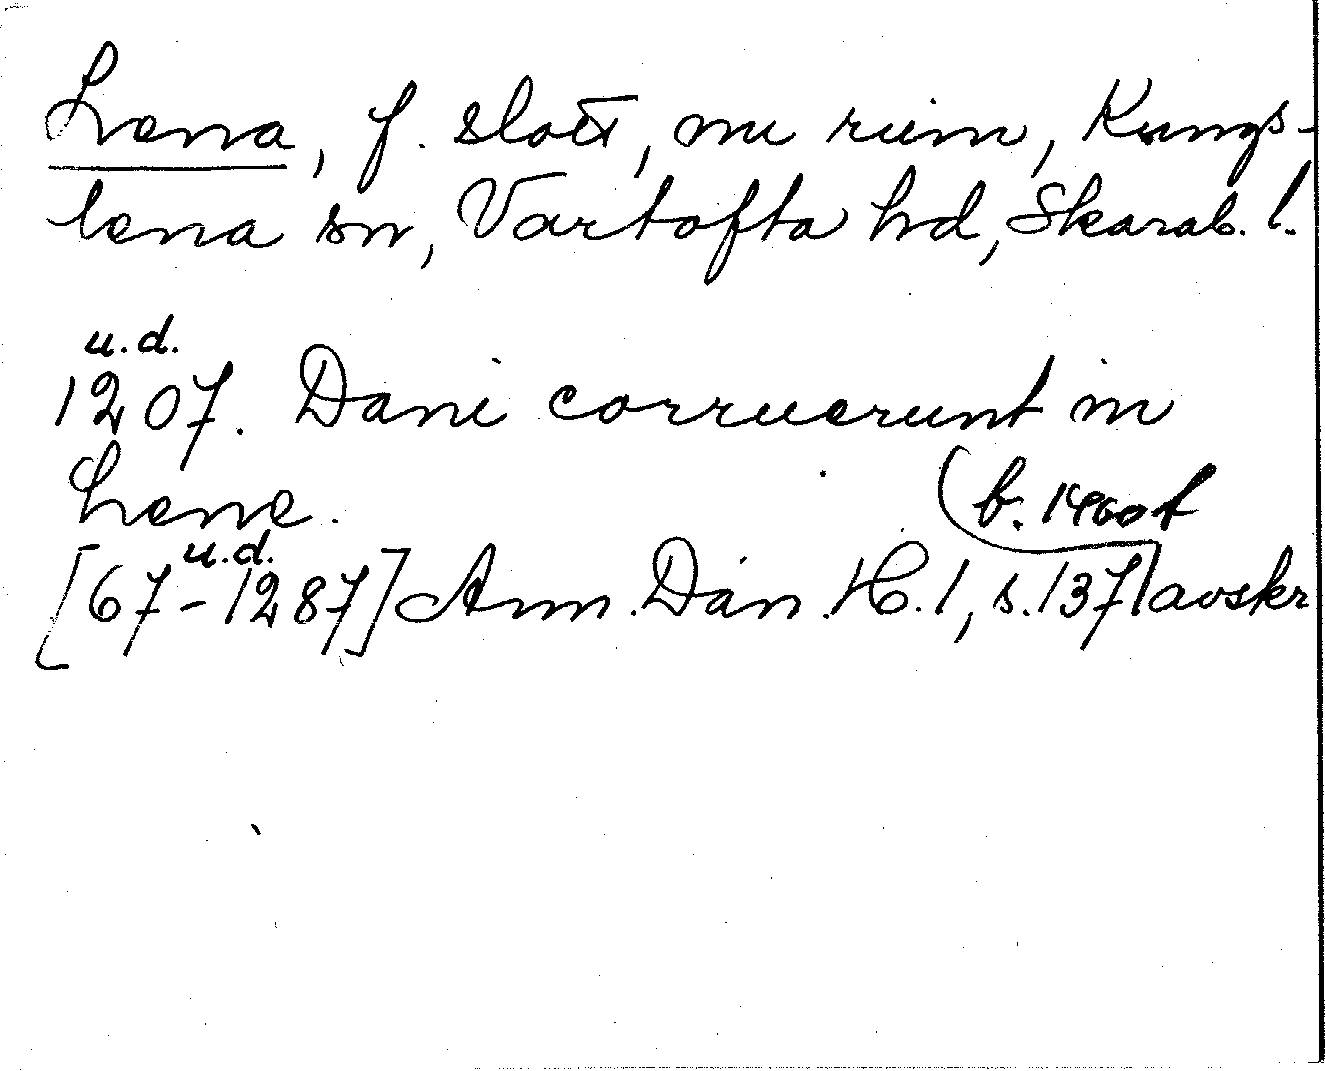 Lena, f. slott, nu ruin, Kungs-
lena sn, Vartofta hd, Skarab. l.
u.d.
1207. Dani corruerunt in
Lene.
b. 1400t
u.d.
[67-1287] Ann. Dan. H. 1, s. 137 avskr